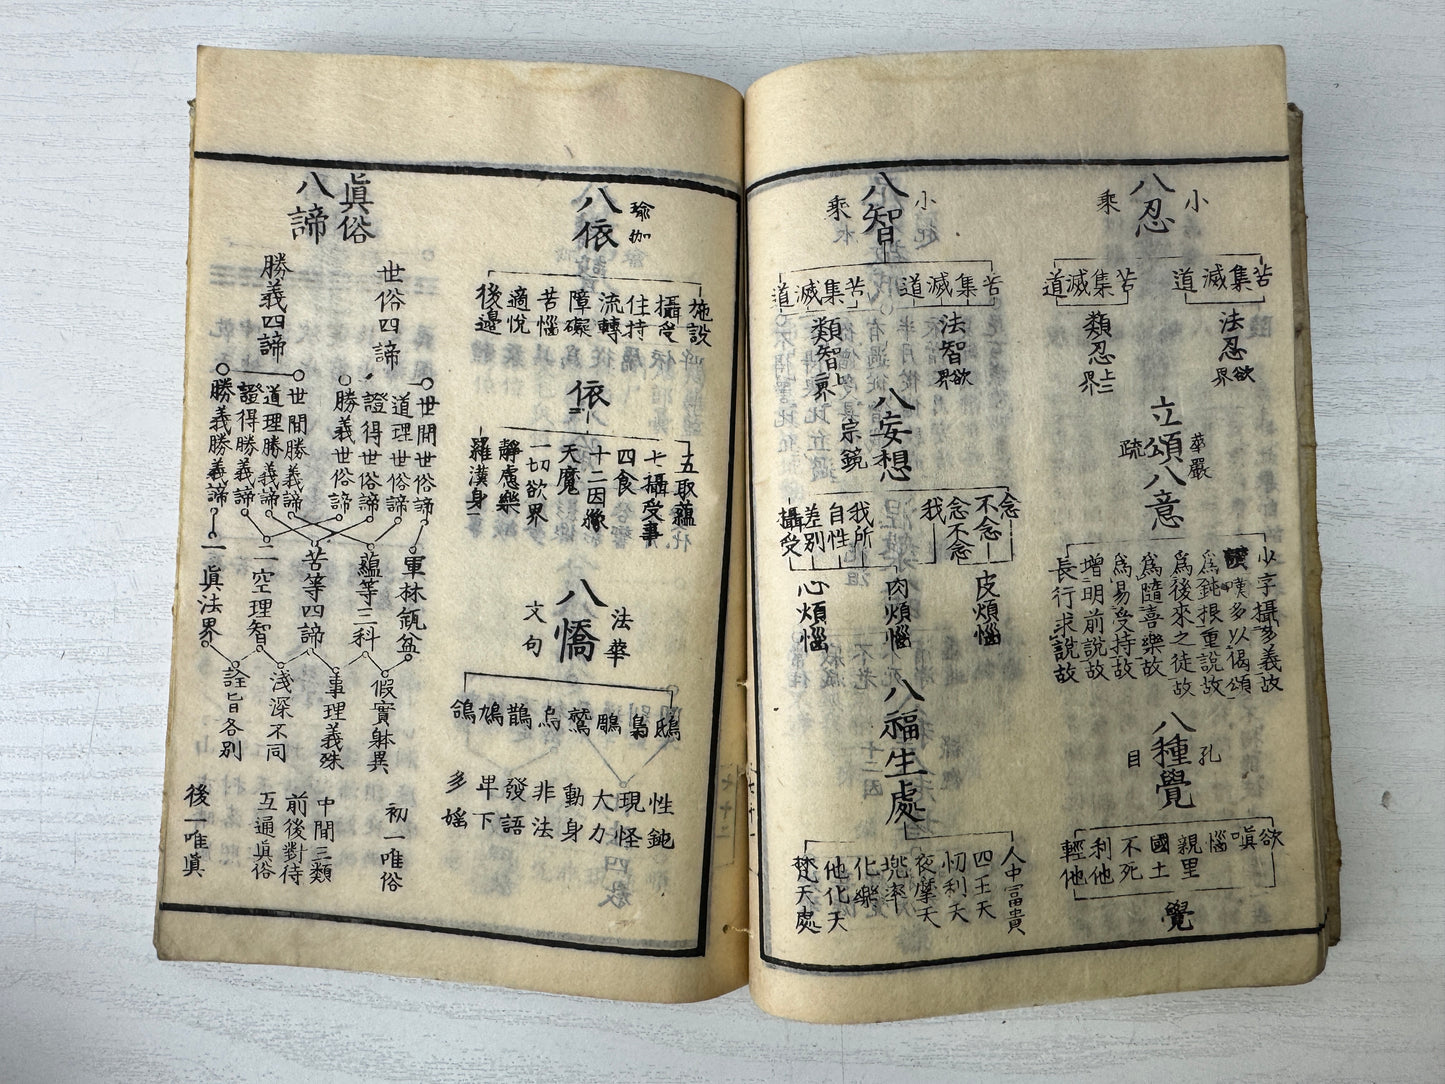 八忍
小
乘
苦
集
滅
道
苦
集
滅
道
法忍
欲
界
類忍
上二
界
立頌八意
華嚴
疏
少字攝多義故
讚嘆多以偈頌
爲鈍根重說故
爲後來之徒故
爲隨喜樂故
爲易受持故
增明前說故
長行求說故
八種覺
孔
目
欲
嗔
惱
親里
國土
不死
利他
輕他
覺
八智
小
乘
苦
集
滅
道
苦
集
滅
道
法智
欲
界
類智
上
界
八妄想
宗鏡
念
不念
念不念
我
我所
自性
差別
攝受
皮煩惱
肉煩惱
心煩惱
八福生處
人中冨貴
四王天
忉利天
夜摩天
兜率
化樂
他化天
梵天處
八依
瑜
伽
施設
攝受
住持
流轉
障礙
苦惱
適悅
後邊
依
五取蘊
七攝受事
四食
十二因緣
天魔
一切欲界
靜慮樂
羅漢身
八憍
法華
文句
鴟
梟
鵰
鷲
烏
鵲
鳩
鴿
性鈍
現怪
大力
動身
非法
發語
卑下
多婬
眞俗
八諦
世俗四諦
勝義四諦
世間世俗諦
道理世俗諦
證得世俗諦
勝義世俗諦
世間勝義諦
道理勝義諦
證得勝義諦
勝義勝義諦
軍林瓶盆
蘊等三科
苦等四諦
二空理智
一眞法界
假實躰異
事理義殊
淺深不同
詮旨各別
初一唯俗
中間三類
前後對待
互遍眞俗
後一唯眞